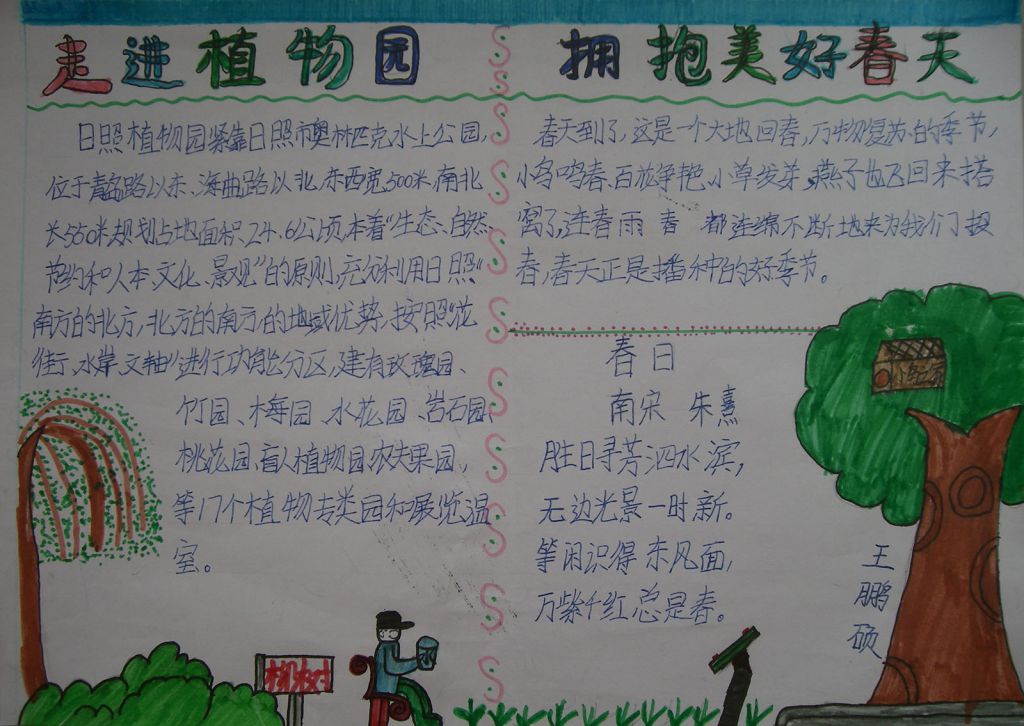 走进植物园
拥抱美好春天
日照植物园紧靠日照市奥林匹克水上公园,
位于青岛路以东、海曲路以北,东西宽500米,南北
长550米规划占地面积24.6公顷,本着“生态、自然、
节约和人本、文化、景观”的原则,充分利用日照“
南方的北方,北方的南方”的地域优势,按照“花
街、水岸、文轴”进行功能分区,建有玫瑰园、
竹园、梅园、水花园、岩石园、
桃花园、盲人植物园、农夫果园,
等17个植物专类园和展览温
室。
春天到了,这是一个大地回春,万物复苏的季节,
小鸟鸣春、百花争艳、小草发芽,燕子也飞回来搭
窝了,连春雨 春 都连绵不断地来为我们报
春,春天正是播种的好季节。
春日
南宋 朱熹
胜日寻芳泗水滨,
无边光景一时新。
等闲识得东风面,
万紫千红总是春。
王
鹏
硕